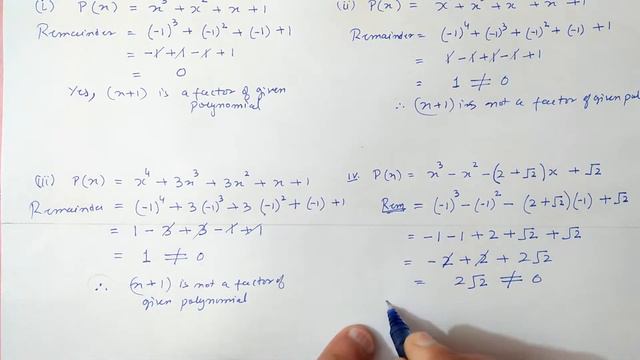 (i) P(x) = x³ + x² + x + 1
Remainder = (-1)³ + (-1)² + (-1) + 1
= -1 + 1 - 1 + 1
= 0
Yes, (x+1) is a factor of given
polynomial
(ii) P(x) = x⁴ + x³ + x² + x + 1
Remainder = (-1)⁴ + (-1)³ + (-1)² + (-1) + 1
= 1 - 1 + 1 - 1 + 1
= 1 ≠ 0
∴ (x+1) is not a factor of given pol
(iii) P(x) = x⁴ + 3x³ + 3x² + x + 1
Remainder = (-1)⁴ + 3(-1)³ + 3(-1)² + (-1) + 1
= 1 - 3 + 3 - 1 + 1
= 1 ≠ 0
∴ (x+1) is not a factor of
given polynomial
iv. P(x) = x³ - x² - (2+√2)x + √2
Rem = (-1)³ - (-1)² - (2+√2)(-1) + √2
= -1 - 1 + 2 + √2 + √2
= -2 + 2 + 2√2
= 2√2 ≠ 0